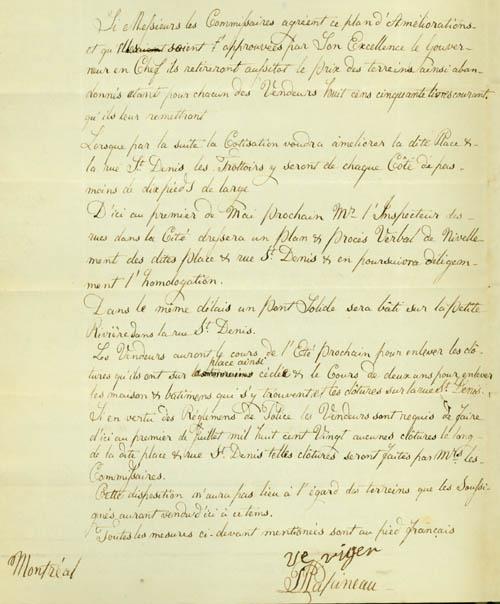 Si Messieurs les Commissaires agréent ce plan d'Améliorations
et qu'il soient approuvées par Son Excellence le Gouver-
neur en Chef ils retireront aussitot le prix des terreins ainsi aban-
donnés etant pour chacun des Vendeurs huit cens cinquante livres courant,
qu'ils leur remettront
Lorsque par la suite la Cotisation voudra améliorer la dite Place &
la rue St. Denis, les Trottoirs y seront de chaque Côté de pas
moins de dix pieds de large
D'ici au premier de Mai prochain Mr. l'Inspecteur des
rues dans la Cité dressera un plan & Procès Verbal de Nivelle-
ment des dites place & rue St. Denis & en poursuivra diligem-
ment l'homologation.
Dans le même délais un pont Solide sera bâti sur la Petite
Rivière dans la rue St. Denis.
Les Vendeurs auront le cours de l'Eté prochain pour enlever les clô-
place ainsi
tures qu'ils ont sur la cédée & le Cours de deux ans pour enlever
les maison & bâtimens qui s'y trouvent et les clôtures sur la rue St. Denis.
Si en vertu des Réglemens de Police les Vendeurs sont requis de faire
d'ici au premier de Juillet mil huit cent Vingt aucunes clôtures le long
de la dite place & rue St. Denis telles clôtures seront faites par Mrs. les
Commissaires.
Cette disposition n'aura pas lieu à l'égard des terreins que les Soussi-
gnés auront vendu d'ici à ce tems.
Toutes les mesures ci-devant mentionées sont au pied français
Montréal
ve viger
Papineau